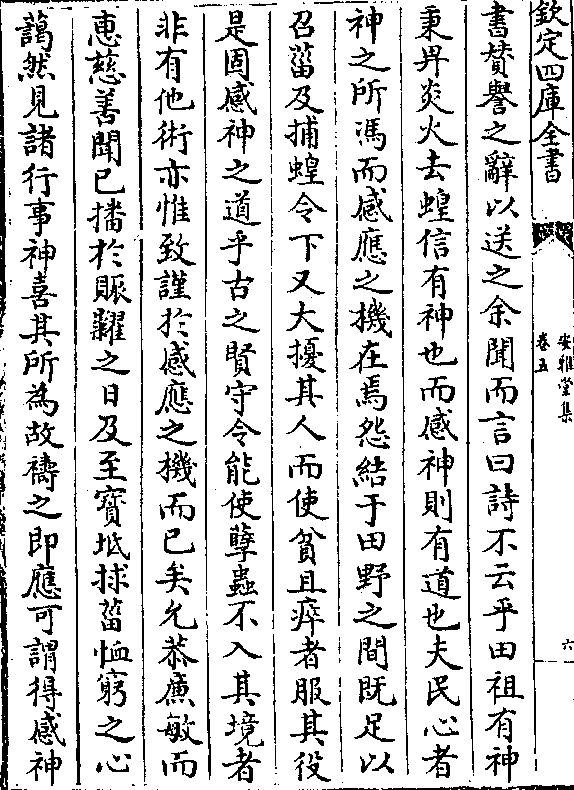 欽定四庫全書
安雅堂集
卷五
六
書賛譽之辭以送之余聞而言曰詩不云乎田祖有神
秉畀炎火去蝗信有神也而感神則有道也夫民心者
神之所馮而感應之機在焉怨結于田野之間既足以
召菑及捕蝗令下又大擾其人而使貧且瘁者服其役
是固感神之道乎古之賢守令能使孽蟲不入其境者
非有他術亦惟致謹於感應之機而已矣允恭廉敏而
恵慈善聞已播於賑糶之日及至寳坻捄菑恤窮之心
藹然見諸行事神喜其所為故禱之即應可謂得感神